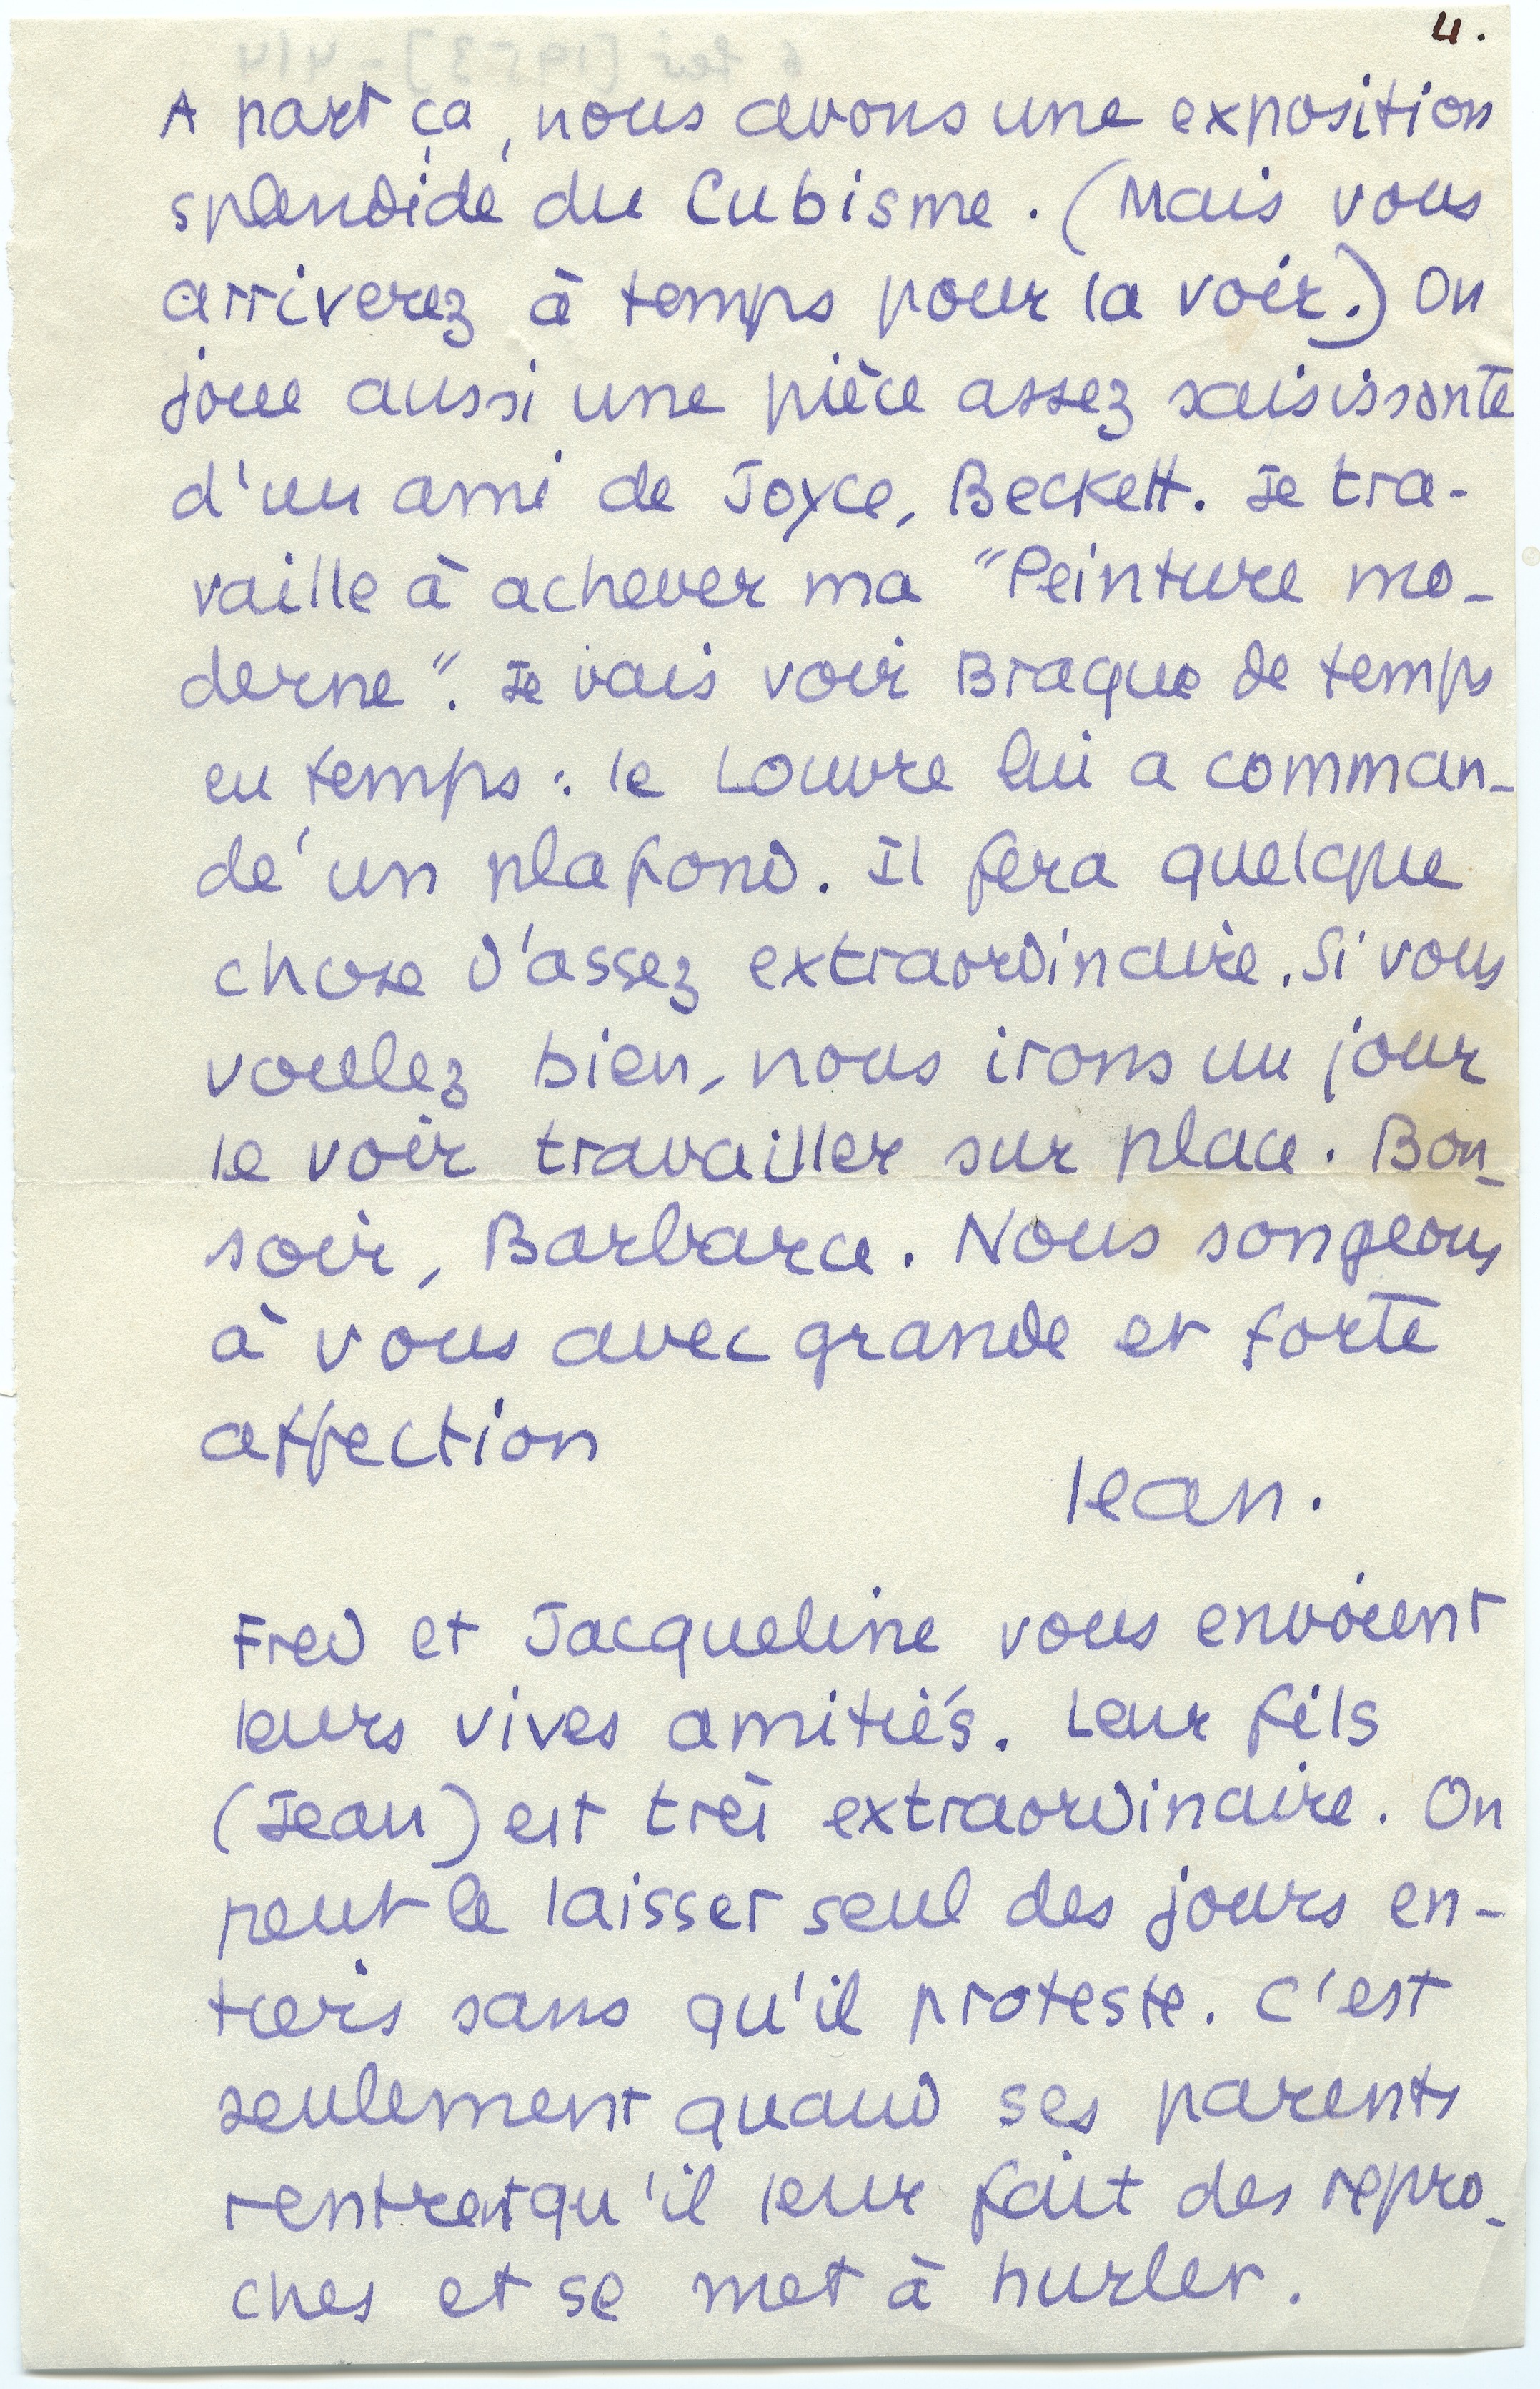 4.
A part ça, nous avons une exposition
splendide du Cubisme. (Mais vous
arriverez à temps pour la voir.) On
joue aussi une pièce assez saisissante
d'un ami de Joyce, Beckett. Je tra-
vaille à achever ma "Peinture mo-
derne". Je vais voir Braque de temps
en temps : le Louvre lui a comman-
dé un plafond. Il fera quelque
chose d'assez extraordinaire. Si vous
voulez bien, nous irons un jour
le voir travailler sur place. Bon-
soir, Barbara. Nous songeons
à vous avec grande et forte
affection
Jean.
Fred et Jacqueline vous envoient
leurs vives amitiés. Leur fils
(Jean) est très extraordinaire. On
peut le laisser seul des jours en-
tiers sans qu'il proteste. C'est
seulement quand ses parents
rentrent qu'il leur fait des repro-
ches et se met à hurler.